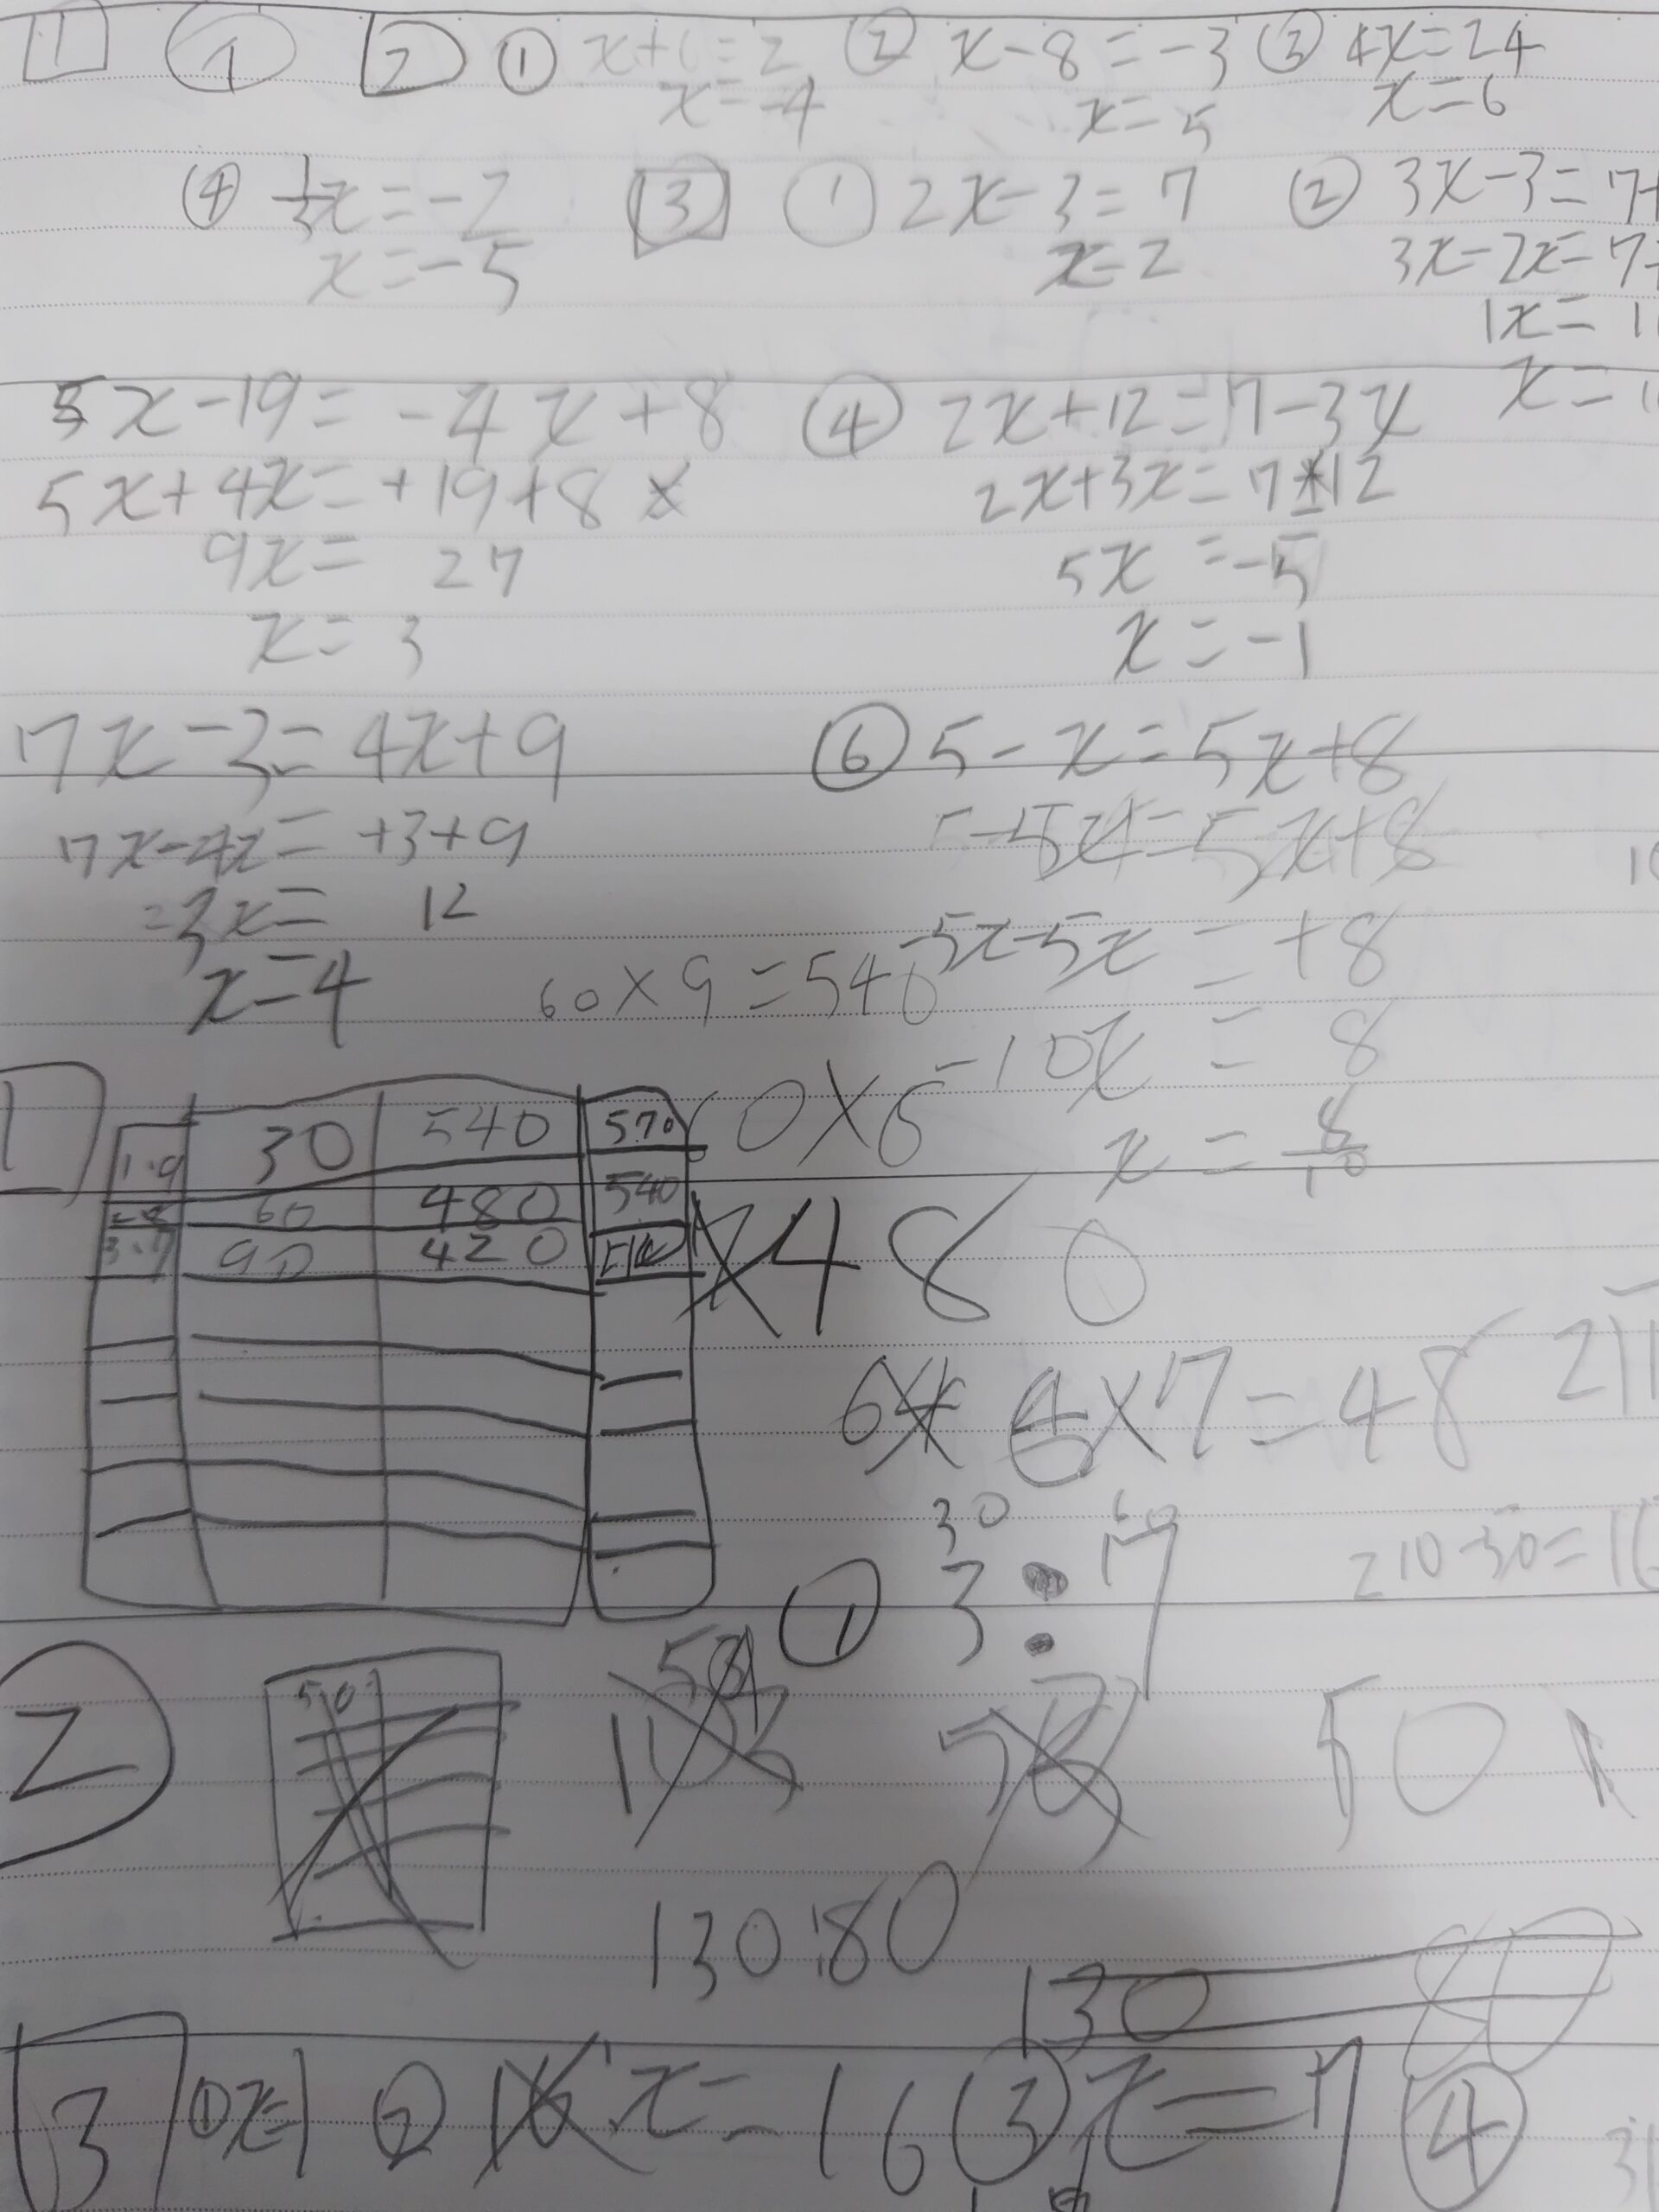 1 ① 2 ① x+6=2 ② x-8=-3 ③ 4x=24
x=-4 x=5 x=6
④ 1/3x=-2 3 ① 2x-3=7 ② 3x-3=7+
x=-5 x=2 3x-2x=7+
1x=1
x=1
5x-19=-4x+8 ④ 2x+12=7-3x
5x+4x=+19+8 2x+3x=7-12
9x=27 5x=-5
x=3 x=-1
7x-3=4x+9 ⑥ 5-x=5x+8
7x-4x=+3+9
=3x=12 -5x-5x=+8
x=4 60×9=540
-10x=8
1 60×6 x=8/10
1.9 30 540 570
2.8 60 480 540
3.7 90 420 510
480
6×7=48
30
① 3:7 210-50=16
②
50
130:80
130 80
3 ①x=1 ② x=16 ③ x=7 ④